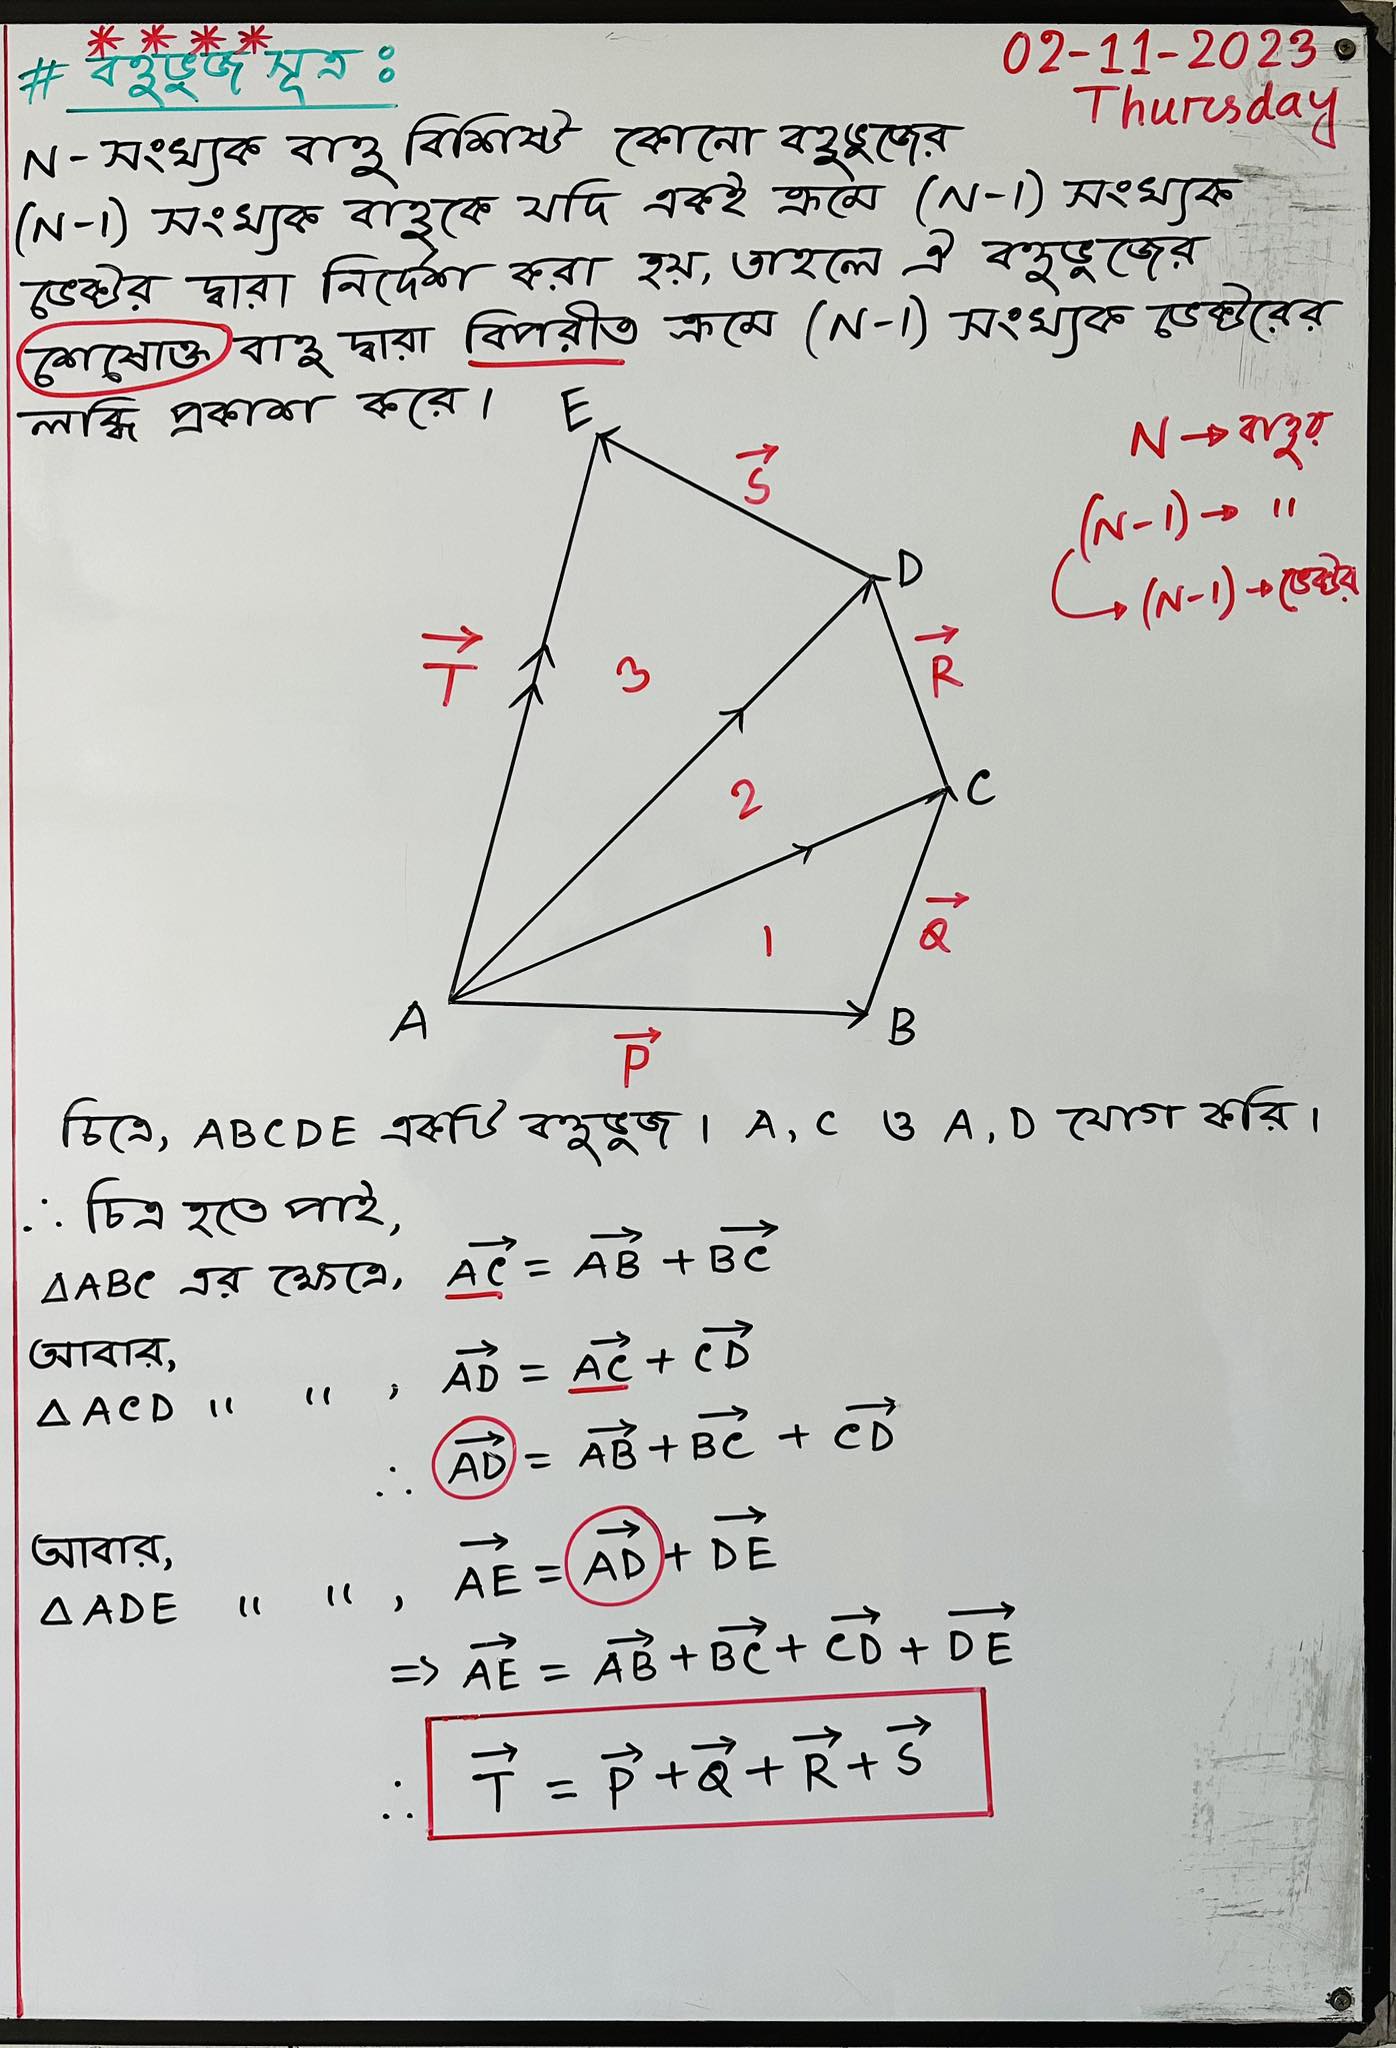 ****
# বহুভুজ সূত্র :
02-11-2023
Thursday
N-সংখ্যক বাহু বিশিষ্ট কোনো বহুভুজের
(N-1) সংখ্যক বাহুকে যদি একই ক্রমে (N-1) সংখ্যক
ভেক্টর দ্বারা নির্দেশ করা হয়, তাহলে ঐ বহুভুজের
শেষোক্ত বাহু দ্বারা বিপরীত ক্রমে (N-1) সংখ্যক ভেক্টরের
লব্ধি প্রকাশ করে।
N → বাহুর
(N-1) → "
→ (N-1) → ভেক্টর
E
S⃗
D
T⃗
3
R⃗
2
C
1
Q⃗
A
B
P⃗
চিত্রে, ABCDE একটি বহুভুজ। A, C ও A, D যোগ করি।
∴ চিত্র হতে পাই,
ΔABC এর ক্ষেত্রে, A͞C⃗ = A͞B⃗ + B͞C⃗
আবার,
ΔACD " " , A͞D⃗ = A͞C⃗ + C͞D⃗
∴ A͞D⃗ = A͞B⃗ + B͞C⃗ + C͞D⃗
আবার,
ΔADE " " , A͞E⃗ = A͞D⃗ + D͞E⃗
=> A͞E⃗ = A͞B⃗ + B͞C⃗ + C͞D⃗ + D͞E⃗
∴ T⃗ = P⃗ + Q⃗ + R⃗ + S⃗